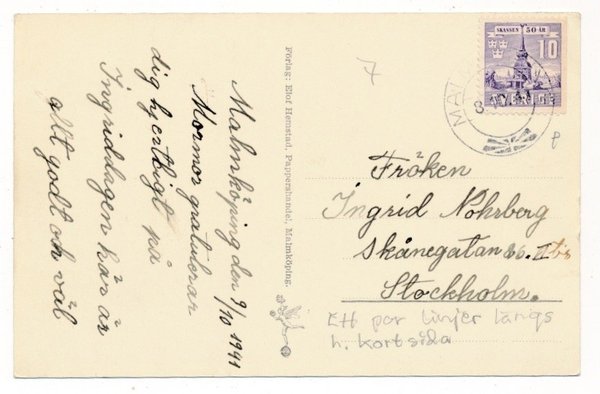 Malmköping den 9/10 1941
Mormor gratulerar
dig hjertligt på
Ingriddagen här är
allt godt och väl
Förlag: Elof Hemstad, Pappershandel, Malmköping.
SKANSEN 50 ÅR
10
SVERIGE
7
Fröken
Ingrid Nohrberg
Skånegatan 86. II
Stockholm.
Ett par linjer längs
h. kortsida